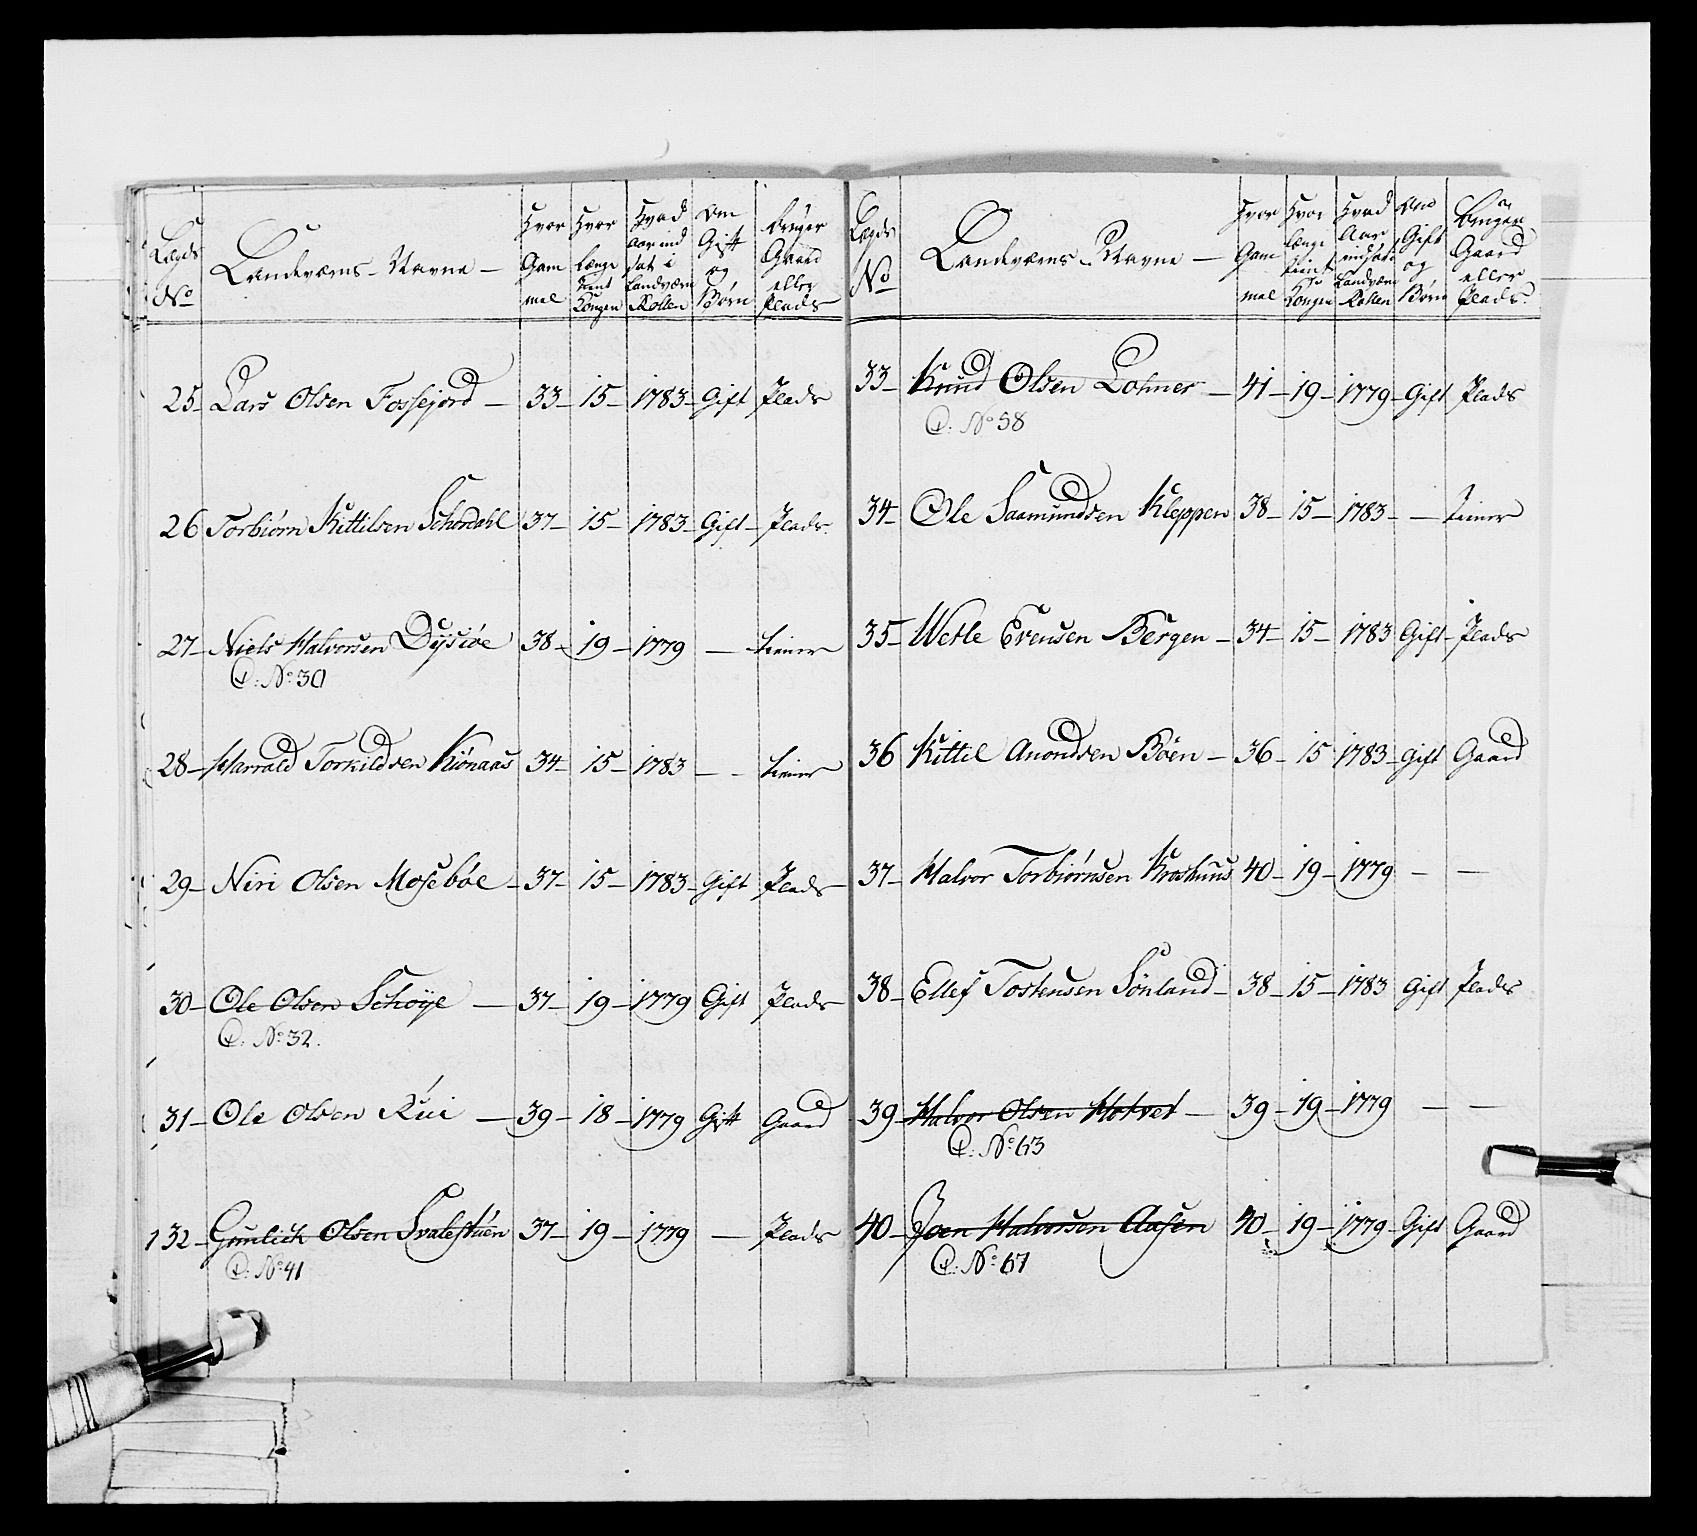 Lægds No
Landeværns-Navne
Hvor Gam mel
Hvor længe tient Kongen
Hvad aar ind sat i Landværn Rollen
Om Gift og Børn
Bruger Gaard eller Plads
25 Lars Olsen Fossejord 33 15 1783 Gift Plads
26 Torbiørn Kittilsen Schordahl 37 15 1783 Gift Plads
27 Niels Halvorsen Dysiøe 38 19 1779 — tiener
C: No 30
28 Harrald Torkildsen Kiønaas 34 15 1783 — tiener
29 Niri Olsen Mosebøe 37 15 1783 Gift Plads
30 Ole Olsen Schøye 37 19 1779 Gift Plads
C: No 32.
31 Ole Olsen Rui 39 18 1779 Gift Gaard
132 Gunlich Olsen Svalestuen 37 19 1779 — Plads
C: No 41
Lægds No
Landeværns Navne
Hvor Gam mel
Hvor længe tient Kongen
Hvad Aar indsat Landværn Rollen
Om Gift og Børn
Bruger Gaard eller Plads
33 Knud Olsen Lohner 41 19 1779 Gift Plads
C: No 58
34 Ole Saamundsen Kleppen 38 15 1783 — tiener
35 Wetle Evensen Bergen 34 15 1783 Gift Plads
36 Kittil Anondsen Bøen 36 15 1783 Gift Gaard
37 Halvor Torbiørnsen Kroshuus 40 19 1779 — —
38 Ellef Tostensen Sønland 38 15 1783 Gift Plads
39 Halvor Olsen Hotvet 39 19 1779 — —
C: No 63
40 Joen Halvorsen Aasen 40 19 1779 Gift Gaard
C: No 67